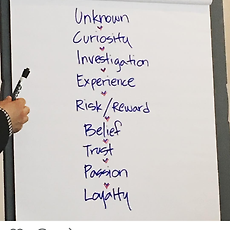 Unknown
Curiosity
Investigation
Experience
Risk/Reward
Belief
Trust
Passion
Loyalty